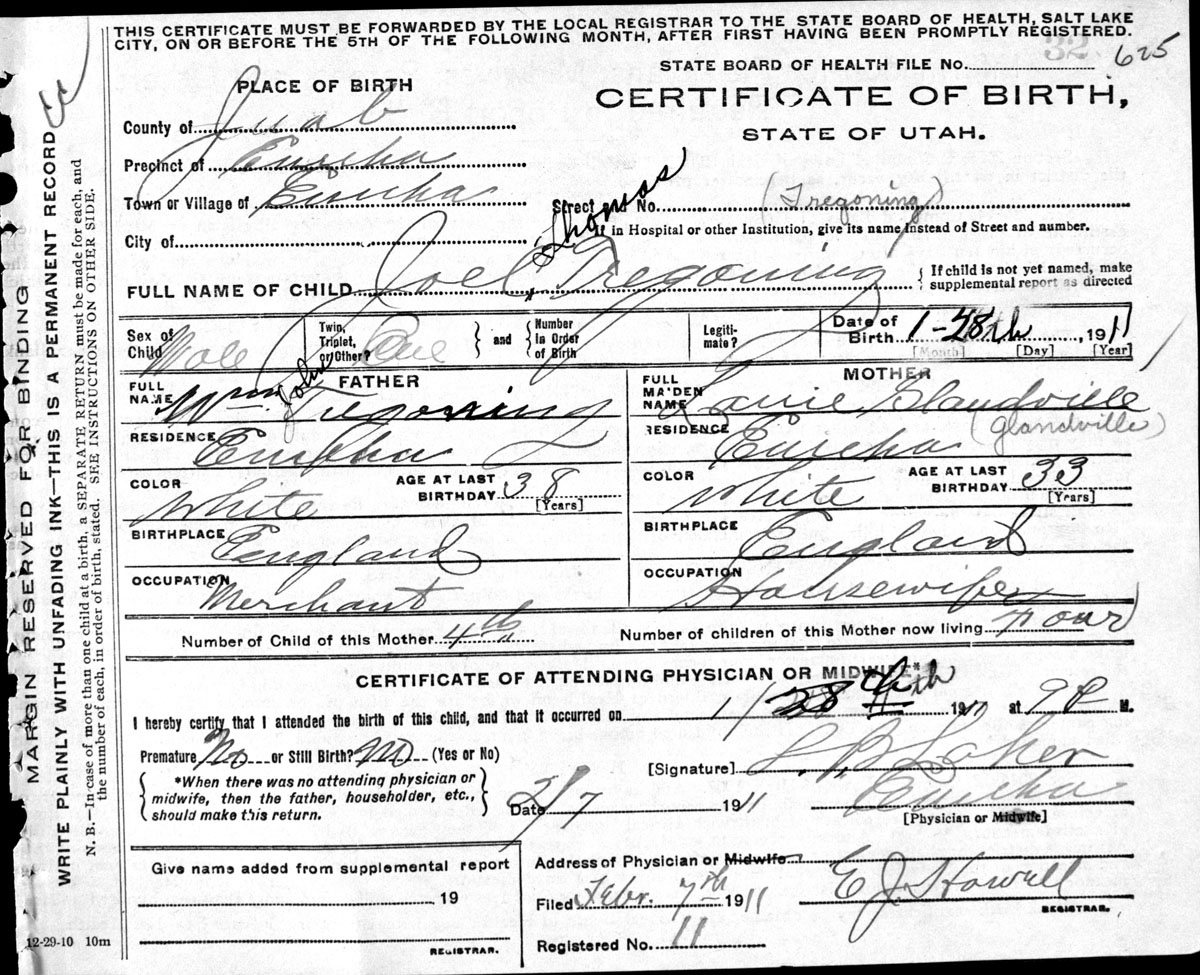 THIS CERTIFICATE MUST BE FORWARDED BY THE LOCAL REGISTRAR TO THE STATE BOARD OF HEALTH, SALT LAKE
CITY, ON OR BEFORE THE 5TH OF THE FOLLOWING MONTH, AFTER FIRST HAVING BEEN PROMPTLY REGISTERED.
32
STATE BOARD OF HEALTH FILE NO. 625
PLACE OF BIRTH
CERTIFICATE OF BIRTH,
STATE OF UTAH.
County of Juab
Precinct of Eureka
Town or Village of Eureka
Street and No. (Tregoning)
City of
If in Hospital or other Institution, give its name instead of Street and number.
Thomas
FULL NAME OF CHILD Joel Tregoning
{ If child is not yet named, make
supplemental report as directed
Sex of Child Male
Twin, Triplet, or Other? One } and { Number In Order of Birth
Legitimate?
Date of Birth 1-28th 1911
[Month] [Day] [Year]
FATHER
FULL NAME Wm John Tregoning
RESIDENCE Eureka
COLOR White
AGE AT LAST BIRTHDAY 38
[Years]
BIRTHPLACE England
OCCUPATION Merchant
MOTHER
FULL MAIDEN NAME Glandville
(Glandville)
RESIDENCE Eureka
COLOR White
AGE AT LAST BIRTHDAY 33
[Years]
BIRTHPLACE England
OCCUPATION Housewife
Number of Child of this Mother 4th
Number of children of this Mother now living Four
CERTIFICATE OF ATTENDING PHYSICIAN OR MIDWIFE*
I hereby certify that I attended the birth of this child, and that it occurred on 1/28 1911 at 9 P M.
Premature No or Still Birth? No (Yes or No)
{ *When there was no attending physician or
midwife, then the father, householder, etc.,
should make this return. }
[Signature] Laker
Date 2/7 1911
Eureka
[Physician or Midwife]
Give name added from supplemental report
19
REGISTRAR.
Address of Physician or Midwife
Filed Febr. 7th 1911
E J Howell
REGISTRAR.
Registered No. 11
12-29-10 10m
MARGIN RESERVED FOR BINDING
WRITE PLAINLY WITH UNFADING INK—THIS IS A PERMANENT RECORD
N. B.—In case of more than one child at a birth, a SEPARATE RETURN must be made for each, and
the number of each, in order of birth, stated. SEE INSTRUCTIONS ON OTHER SIDE.